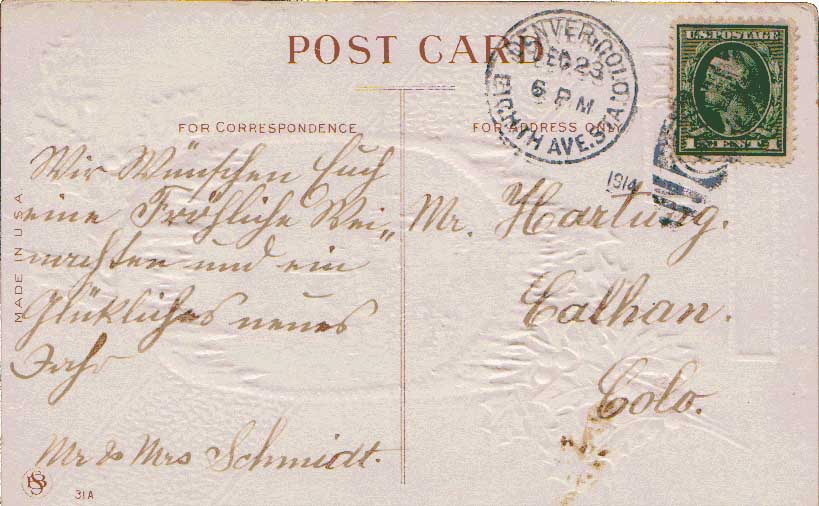 POST CARD
DENVER, COLO.
DEC 23
6 PM
EIGHTH AVE. STA.
1914
U.S. POSTAGE
1 CENT 1
FOR CORRESPONDENCE
FOR ADDRESS ONLY
Wir Wünschen Euch
eine Fröhliche Wei„
nachten und ein
Glükliches neues
Jahr
Mr & Mrs Schmidt.
Mr. Hartung.
Calhan.
Colo.
MADE IN U.S.A.
31A